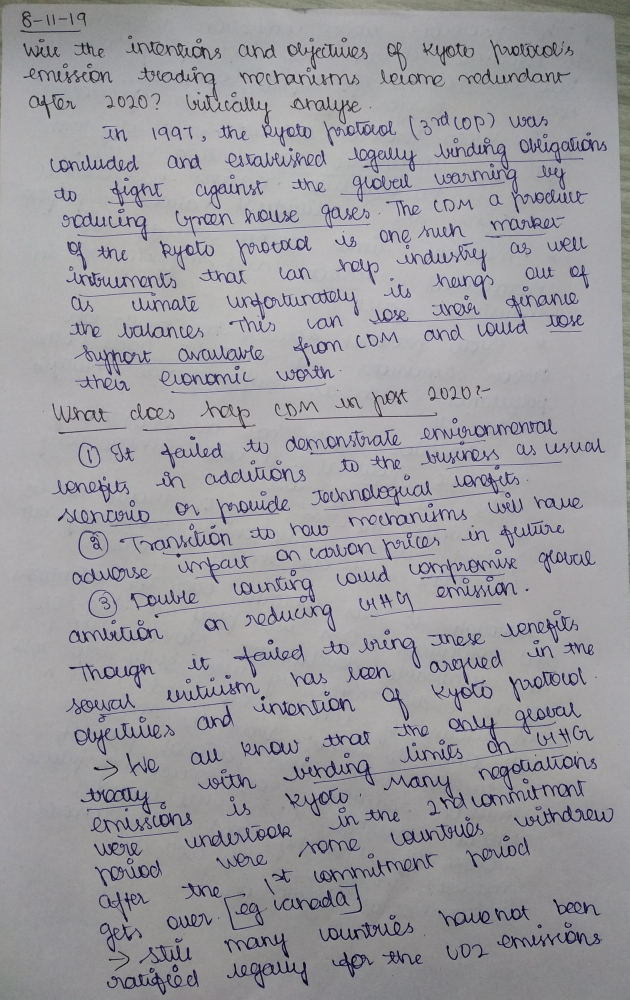 8-11-19
Will the intentions and objectives of Kyoto protocol's
emission trading mechanisms become redundant
after 2020? Critically analyse.
In 1997, the Kyoto protocol (3rd COP) was
concluded and established legally binding obligations
to fight against the global warming by
reducing Green house gases. The CDM a product
of the Kyoto protocol is one such market
intruments that can help industry as well
as climate unfortunately its hangs out of
the balances. This can lose their finance
support available from CDM and could lose
their economic worth.
What does help CDM in post 2020?-
① It failed to demonstrate environmental
benefits in additions to the business as usual
scenario or provide technological benefits.
② Transition to how mechanisms will have
adverse impact on carbon prices in future
③ Double counting could compromise global
ambition on reducing GHG emission.
Though it failed to bring these benefits
several criticism has been argued in the
objectives and intention of Kyoto protocol.
→ We all know that the only global
treaty with binding limits on GHG
emissions is Kyoto. Many negotiations
were undertook in the 2nd commitment
period were some countries withdrew
after the 1st commitment period
gets over [eg canada]
→ still many countries have not been
ratified legally for the CO2 emissions